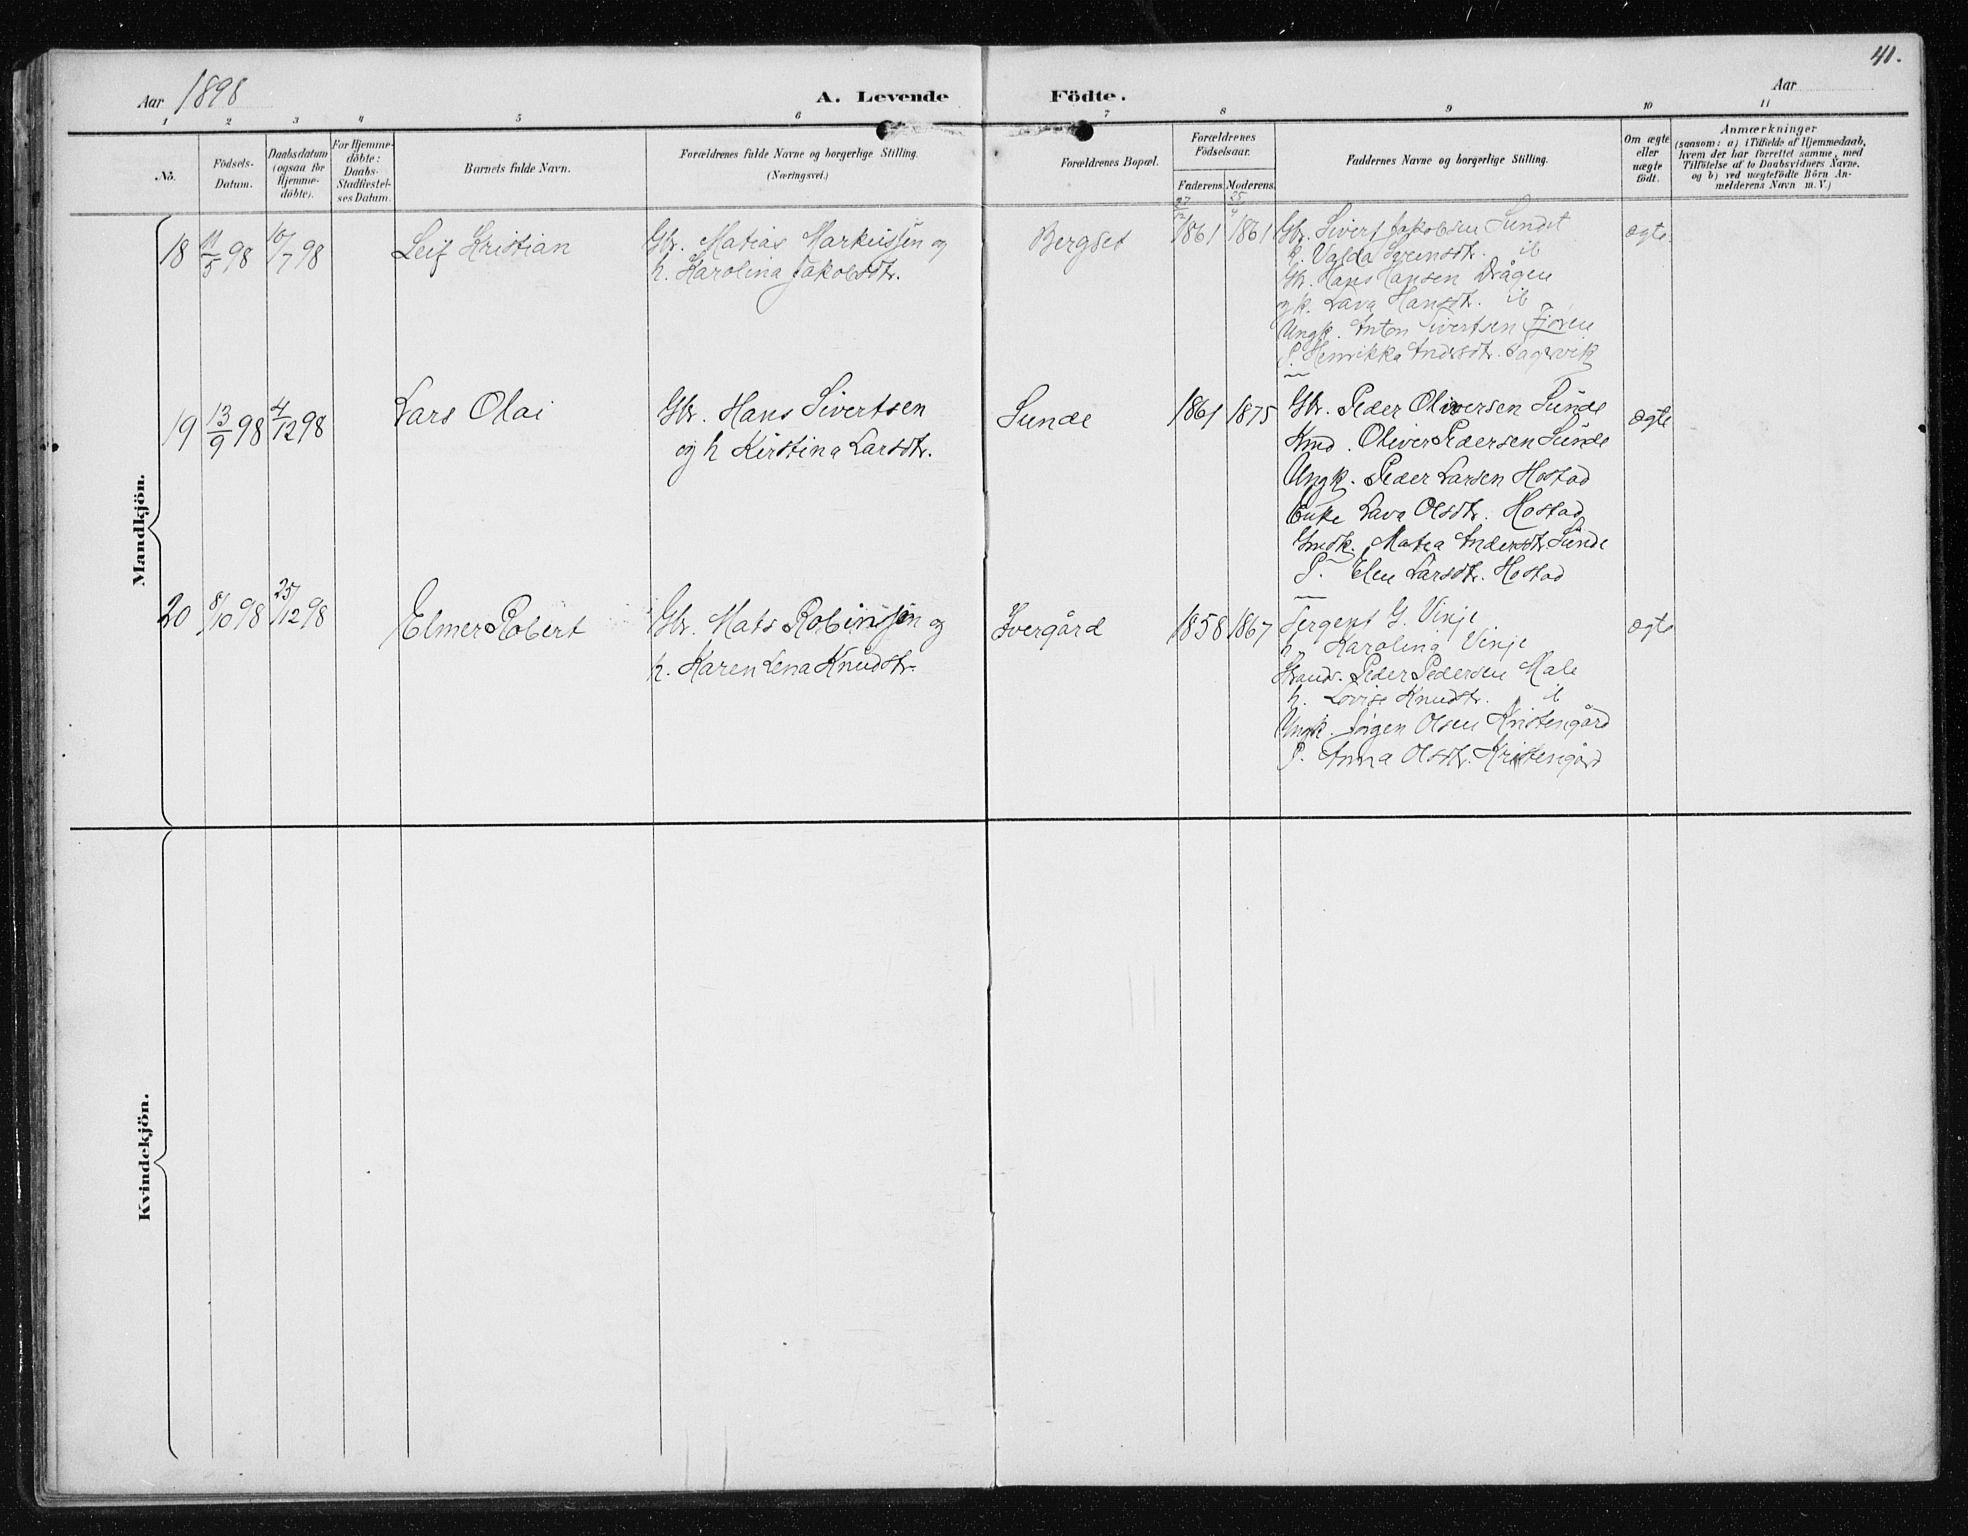 41.
Aar 1898
A. Levende Födte.
Aar
1 2 3 4 5 6 7 8 9 10 11
No.
Födsels-
Datum.
Daabsdatum
(ogsaa for
Hjemme-
döbte).
For Hjemme-
döbte:
Daabs-
Stadfæstel-
ses Datum.
Barnets fulde Navn.
Forældrenes fulde Navne og borgerlige Stilling.
(Næringsvei.)
Forældrenes Bopæl.
Forældrenes
Födselsaar.
Faderens. Moderens.
Faddernes Navne og borgerlige Stilling.
Om ægte
eller
uægte
födt.
Anmærkninger
(saasom: a) i Tilfælde af Hjemmedaab,
hvem der har forrettet samme, med
Tilföielse af to Daabsvidners Navne.
og b) ved uægtefödte Börn An-
melderens Navn m. V.)
Mandkjön.
18 11/5 98 10/7 98
Leif Kristian
Gbr. Matias Markussen og
h. Karolina Jakobsdtr.
Bergset
27/12 1861 25/4 1861
Gbr. Sivert Jakobsen Sundet
k. Valda Sveinsdtr. ib
Gbr. Hans Hansen Drågen
og k. Lava Hansdtr. ib
Ungk. Anton Sivertsen
P. Henrikka Andersdtr.
ægte.
19 13/9 98 4/12 98
Lars Olai
Gbr. Hans Sivertsen
og h Kirstina Larsdtr.
Sunde
1861 1875
Gbr. Peder Oliversen Sunde
Kmd. Oliver Pedersen Sunde
Ungk. Peder Larsen Hostad
Enke Lava Olsdtr. Hostad
Gmdk. Matea Andersdtr Sunde
P. Elen Larsdtr. Hostad
ægte
20 8/10 98 25/12 98
Elmer Robert
Gbr. Mats Robinssøn og
h. Karen Lena Knudstr.
Ivergård
1858 1867
Sergent G. Vinje
h. Karolina Vinje
Peder Pedersen Male
h. Lovise Knudstr. ib
Ungk. Jørgen Olsen Kristengård
P. Anna Olsdtr. Kristengård
ægte
Kvindekjön.